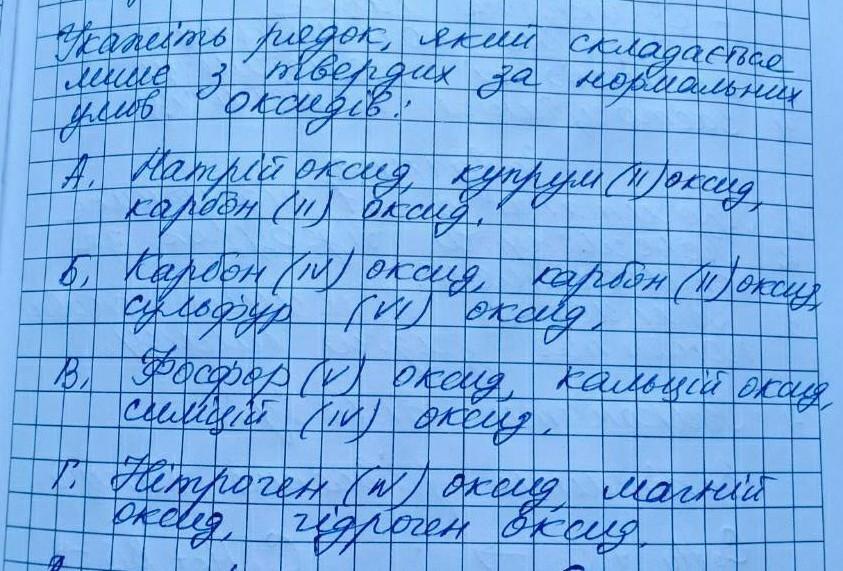 Укажіть рядок, який складається
лише з твердих за нормальних
умов оксидів:
А. Натрій оксид, купрум (ІІ) оксид,
карбон (ІІ) оксид.
Б. Карбон (IV) оксид, карбон (ІІ) оксид,
сульфур (VI) оксид.
В. Фосфор (V) оксид, кальцій оксид,
силіцій (IV) оксид.
Г. Нітроген (IV) оксид, магній
оксид, гідроген оксид.